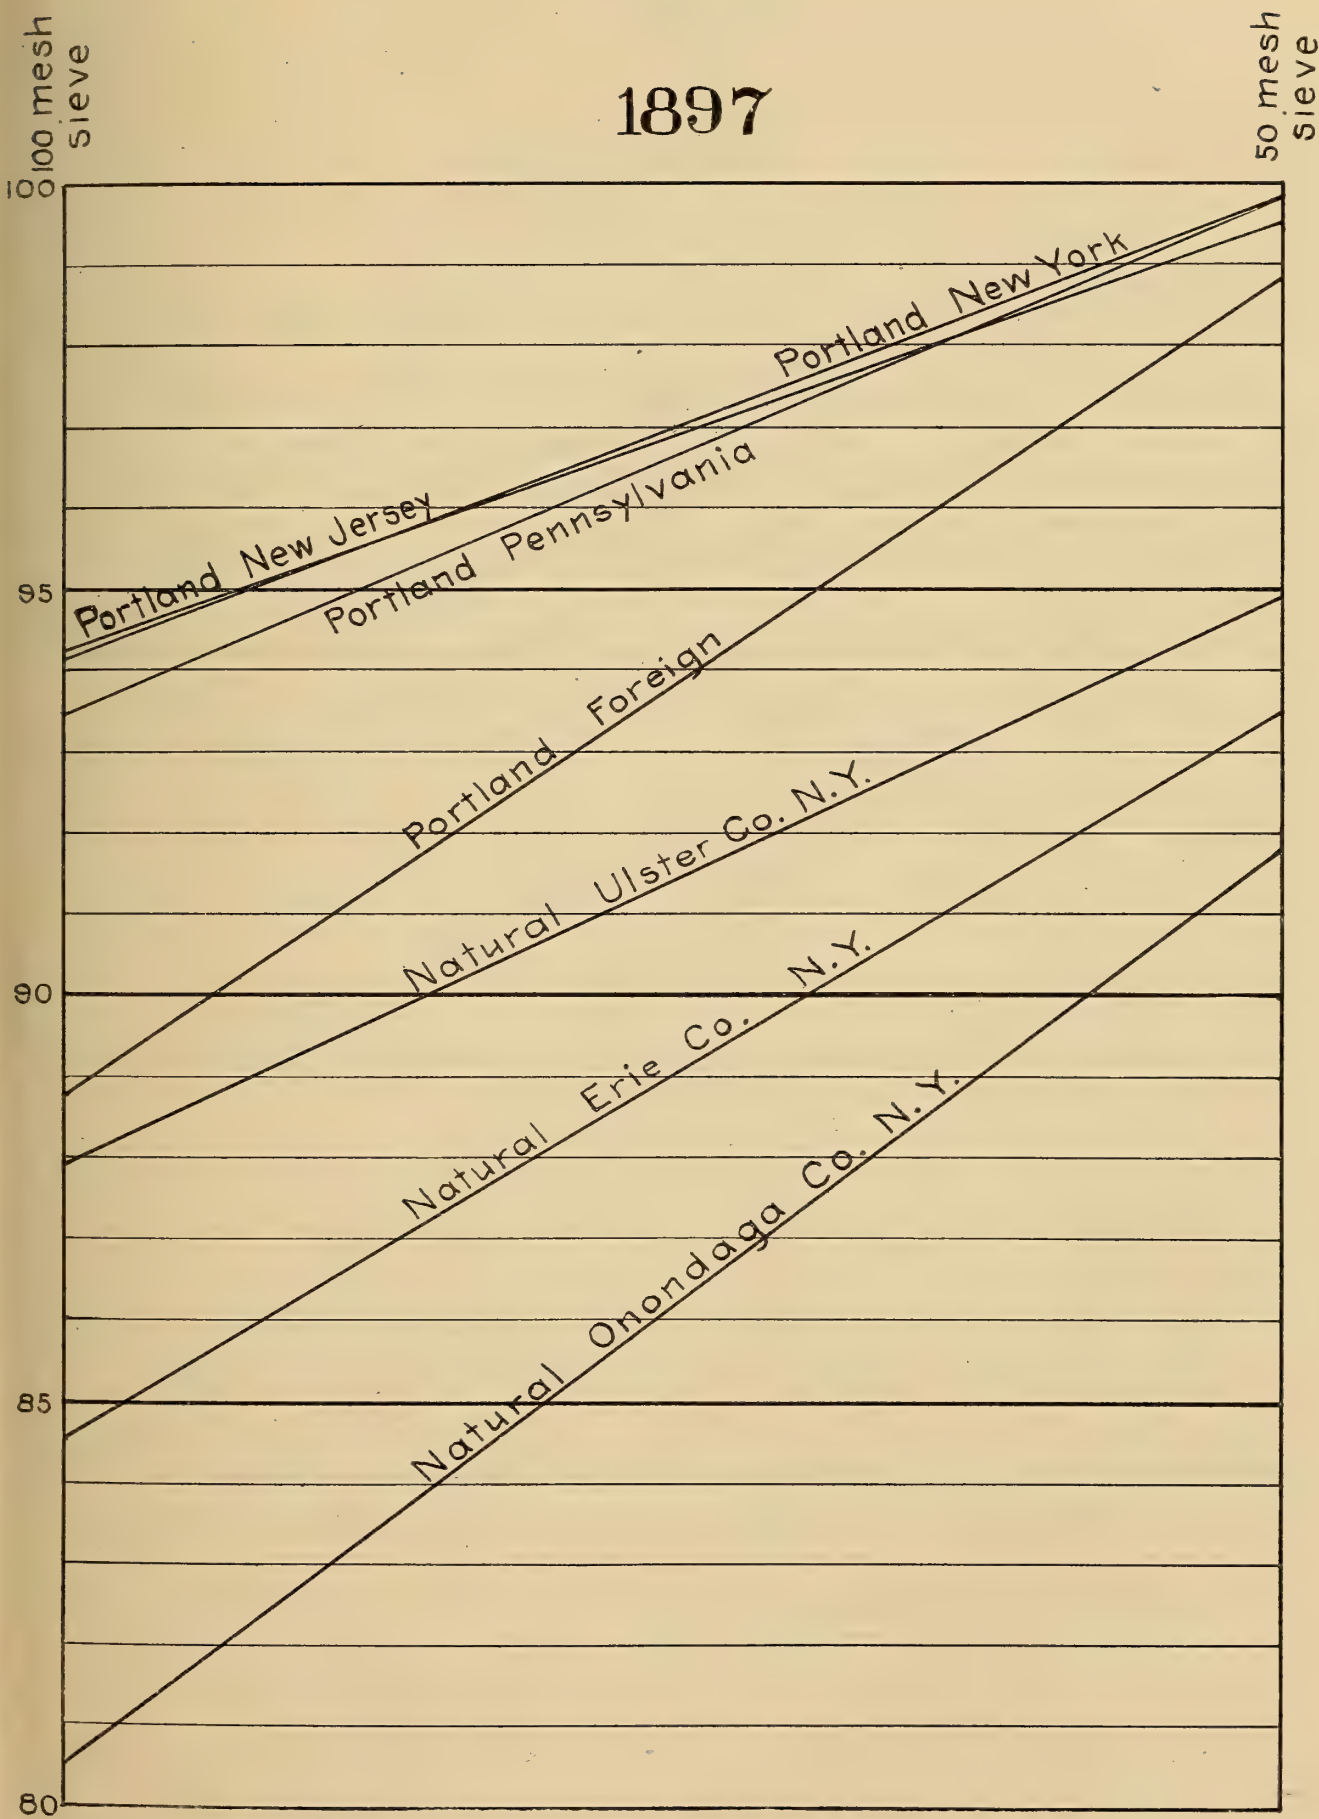 100 mesh
sieve
50 mesh
sieve
1897
100
Portland New York
Portland New Jersey
Portland Pennsylvania
95
Portland Foreign
Natural Ulster Co. N.Y.
90
Natural Erie Co. N.Y.
Natural Onondaga Co. N.Y.
85
80